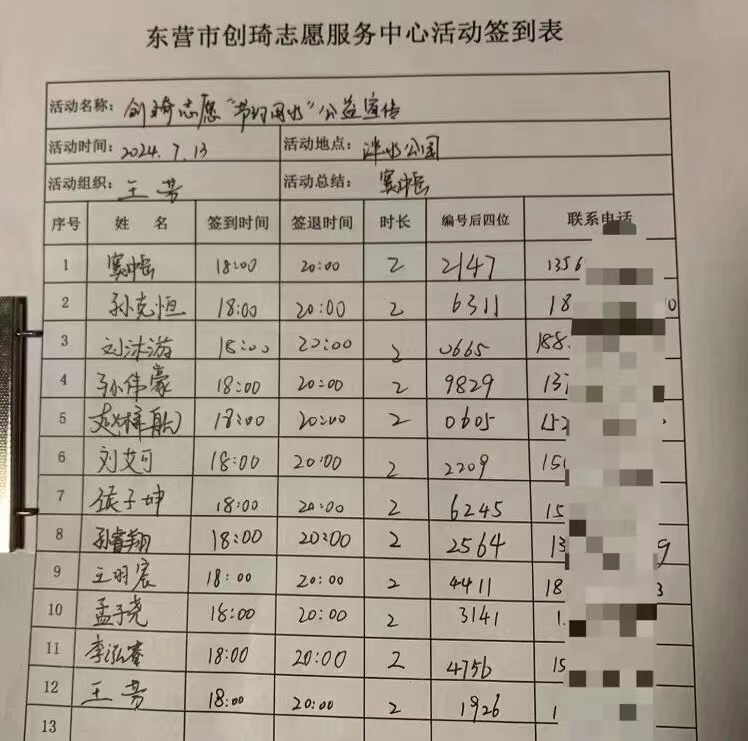 东营市创琦志愿服务中心活动签到表
活动名称: 创琦志愿"节约用水"公益宣传
活动时间: 2024.7.13 活动地点: 公园
活动组织: 王芳 活动总结:
序号 姓 名 签到时间 签退时间 时长 编号后四位 联系电话
1 18:00 20:00 2 2147 1356
2 孙克恒 18:00 20:00 2 6311 18 0
3 刘沐游 18:00 20:00 2 0665 188
4 孙伟豪 18:00 20:00 2 9829 137
5 赵梓航 18:00 20:00 2 0605 152
6 刘艾可 18:00 20:00 2 2209 151
7 侯子坤 18:00 20:00 2 6245 15
8 孙睿翔 18:00 20:00 2 2564 13 9
9 王羽宸 18:00 20:00 2 4411 18 3
10 孟子尧 18:00 20:00 2 3141 1
11 李泓睿 18:00 20:00 2 4756 15
12 王芳 18:00 20:00 2 1926 1
13